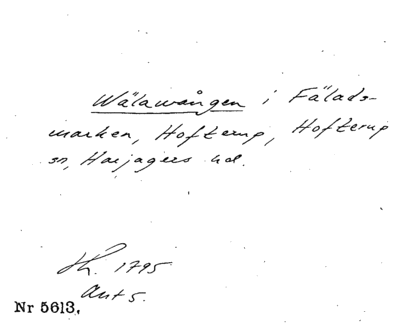 Wälawången i Fälads-
marken, Hofterup, Hofterup
sn, Harjagers hd.
Sk. 1795
Akt 5.
Nr 5613.